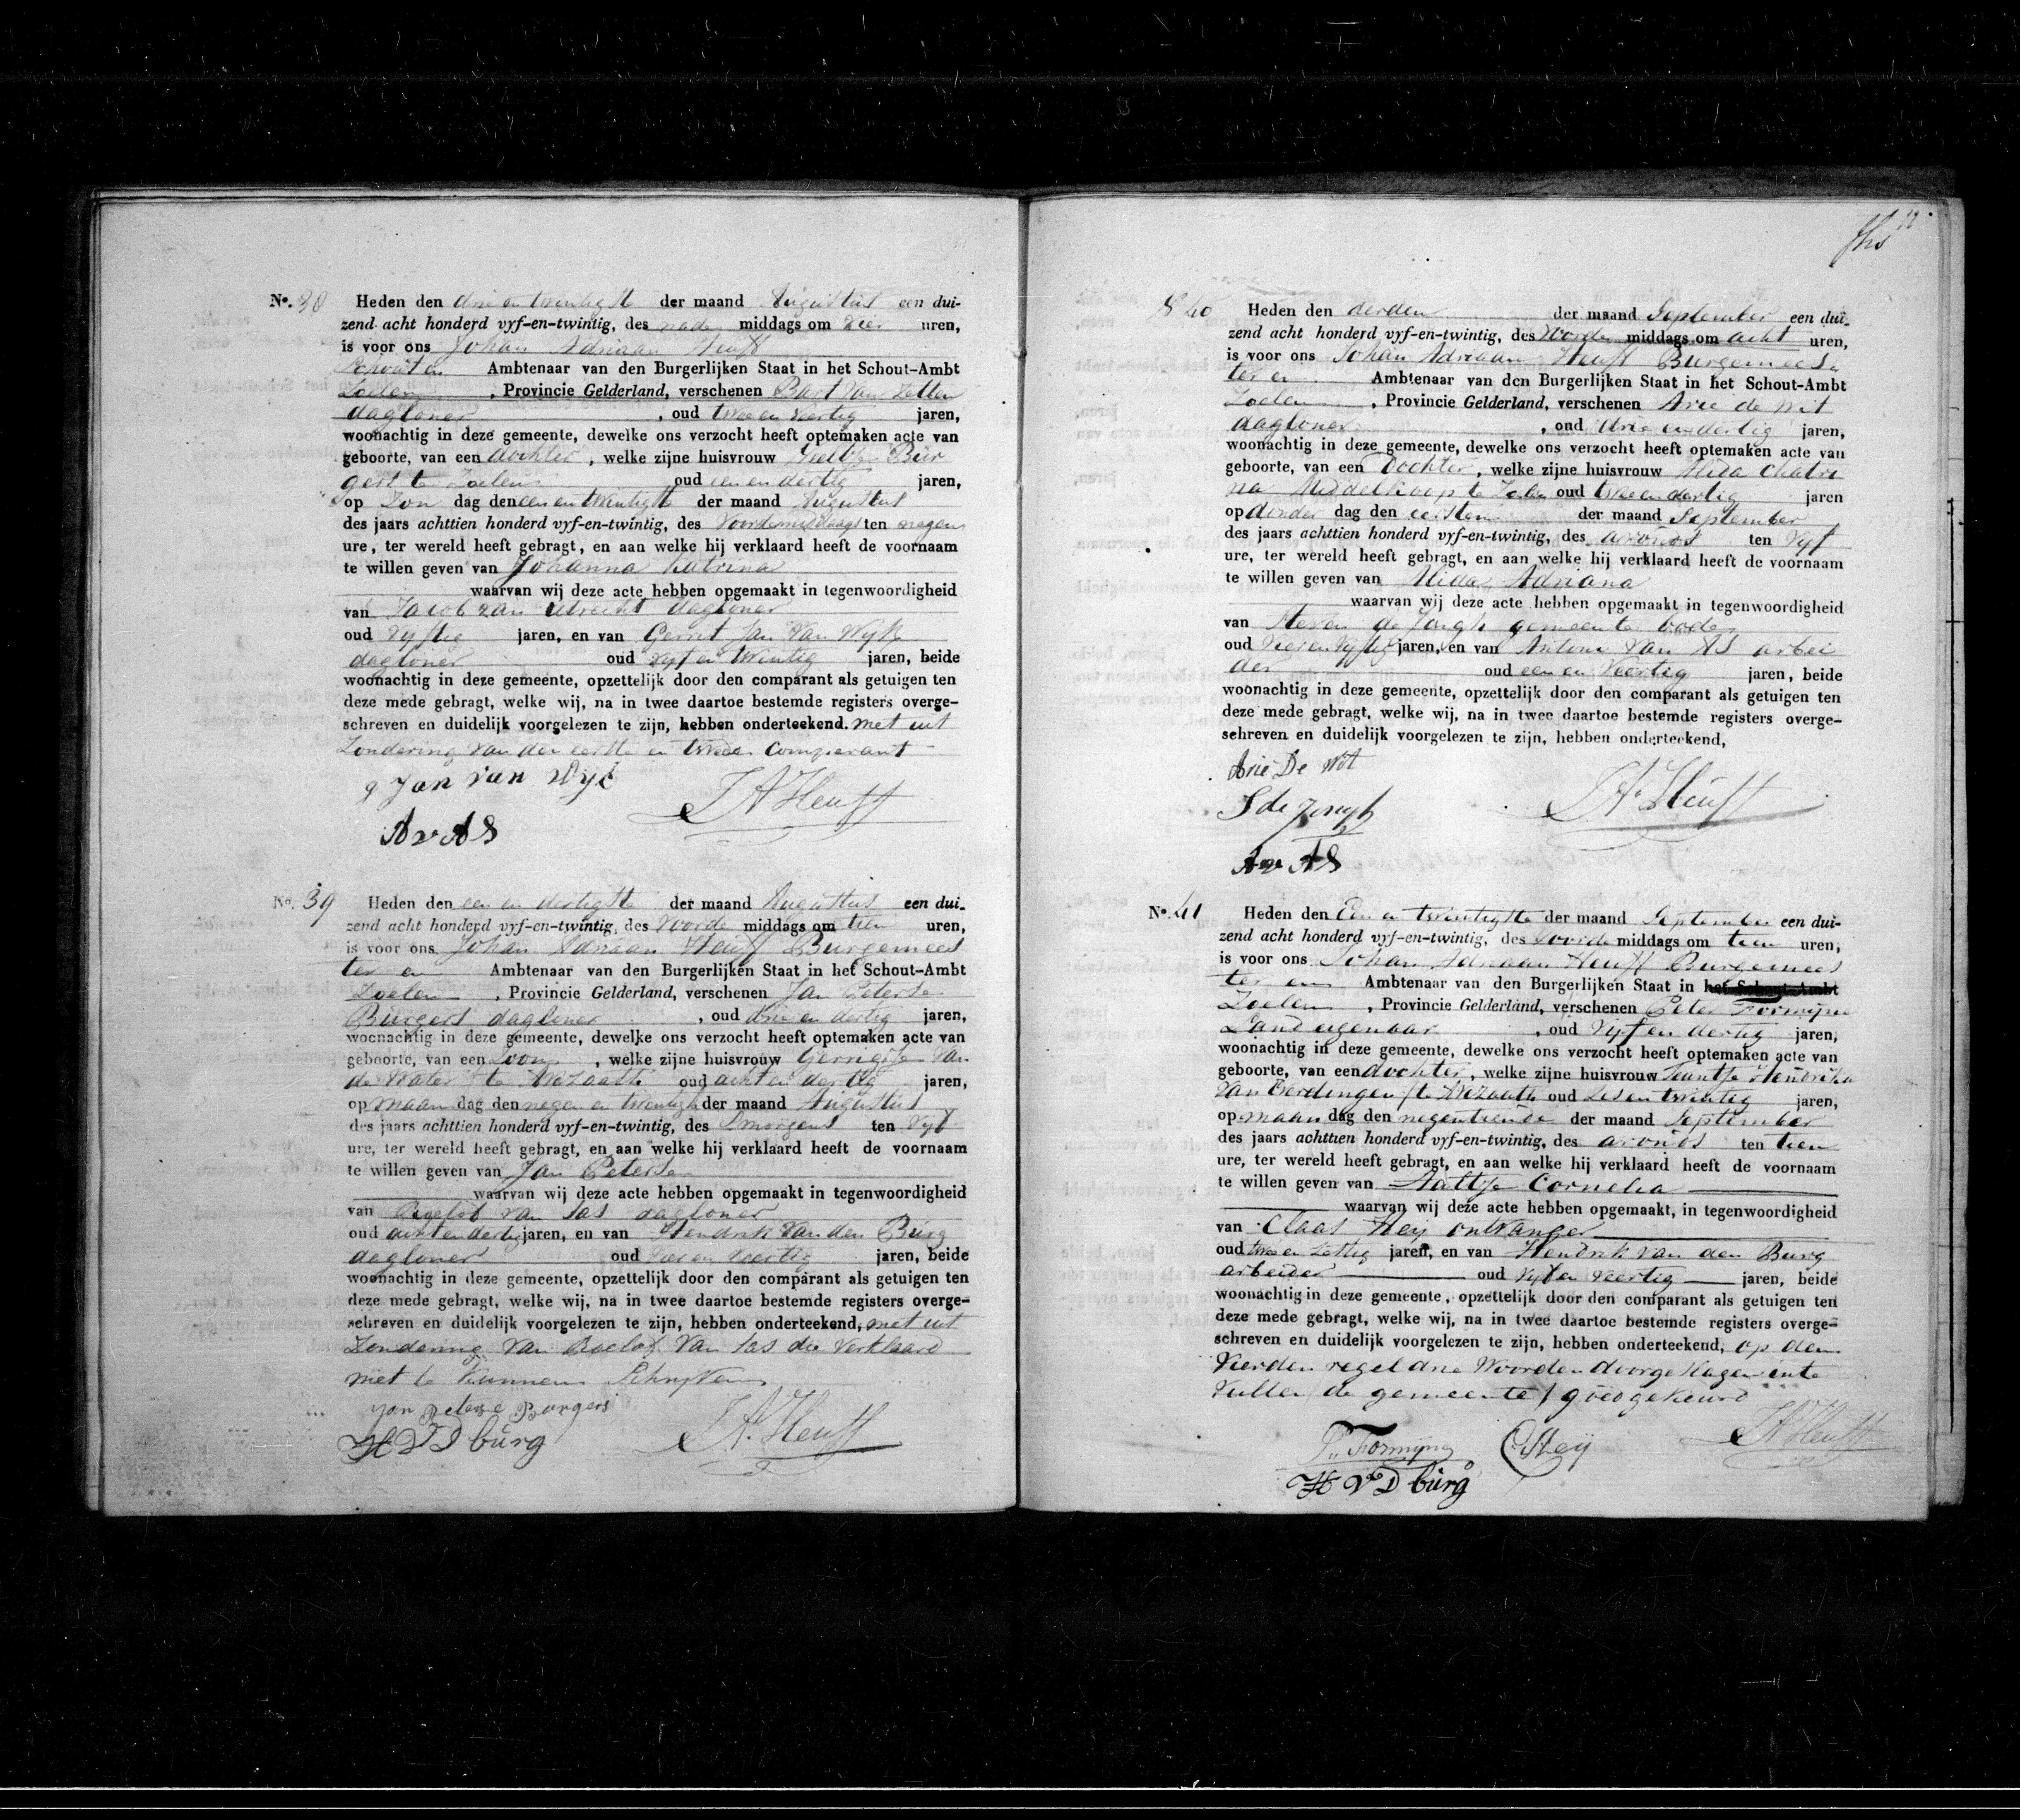 No. 38 Heden den drie en twintigste der maand Augustus een dui-
zend acht honderd vyf-en-twintig, des nade middags om vier uren,
is voor ons Johan Adriaan Heuff
Schout en Ambtenaar van den Burgerlijken Staat in het Schout-Ambt
Zoelen, Provincie Gelderland, verschenen Bart van Zetten
dagloner, oud twee en veertig jaren,
woonachtig in deze gemeente, dewelke ons verzocht heeft optemaken acte van
geboorte, van een dochter, welke zijne huisvrouw Bur
gers te Zoelen oud een en dertig jaren,
op Zon dag den een en twintigste der maand Augustus
des jaars achttien honderd vyf-en-twintig, des Voordemiddags ten negen
ure, ter wereld heeft gebragt, en aan welke hij verklaard heeft de voornaam
te willen geven van Johanna Katrina
waarvan wij deze acte hebben opgemaakt in tegenwoordigheid
van Jacob van Utrecht dagloner
oud vyftig jaren, en van Gerrit Jan van Wyk
dagloner oud vyf en twintig jaren, beide
woonachtig in deze gemeente, opzettelijk door den comparant als getuigen ten
deze mede gebragt, welke wij, na in twee daartoe bestemde registers overge-
schreven en duidelijk voorgelezen te zijn, hebben onderteekend. met uit
zondering van den eerste en twede comperant
g Jan van Wyk
JA Heuff
A v AS
No. 39 Heden den een en dertigste der maand Augustus een dui-
zend acht honderd vyf-en-twintig, des voorde middags om tien uren,
is voor ons Johan Adriaan Heuff Burgemees
ter en Ambtenaar van den Burgerlijken Staat in het Schout-Ambt
Zoelen, Provincie Gelderland, verschenen Jan Peterse
Burgers dagloner, oud drie en dertig jaren,
woonachtig in deze gemeente, dewelke ons verzocht heeft optemaken acte van
geboorte, van een Zoon, welke zijne huisvrouw Gerrigje van
de Water te Avezaath oud acht en dertig jaren,
op maan dag den negen en twintigste der maand Augustus
des jaars achttien honderd vyf-en-twintig, des Smorgens ten vyf
ure, ter wereld heeft gebragt, en aan welke hij verklaard heeft de voornaam
te willen geven van Jan Peterse
waarvan wij deze acte hebben opgemaakt in tegenwoordigheid
van Roelof van Tas dagloner
oud acht en dertig jaren, en van Hendrik van den Burg
dagloner oud vier en veertig jaren, beide
woonachtig in deze gemeente, opzettelijk door den compárant als getuigen ten
deze mede gebragt, welke wij, na in twee daartoe bestemde registers overge-
schreven en duidelijk voorgelezen te zijn, hebben onderteekend, met uit
Zondering van Roelof van Tas die verklaard
niet te kunnen Schryven
Jan Peterse Burgers
JA Heuff
H V D burg
12
No 40 Heden den derden der maand September een dui-
zend acht honderd vyf-en-twintig, des Voorde middags om acht uren,
is voor ons Johan Adriaan Heuff Burgemees
ter en Ambtenaar van den Burgerlijken Staat in het Schout-Ambt
Zoelen, Provincie Gelderland, verschenen Arie de Wit
dagloner, oud drie en dertig jaren,
woonachtig in deze gemeente, dewelke ons verzocht heeft optemaken acte van
geboorte, van een Dochter, welke zijne huisvrouw Alida Chatri
na Middelkoop te Zoelen oud twee en dertig jaren
op donder dag den eersten der maand September
des jaars achttien honderd vyf-en-twintig, des avonds ten vyf
ure, ter wereld heeft gebragt, en aan welke hij verklaard heeft de voornaam
te willen geven van Alida Adriana
waarvan wij deze acte hebben opgemaakt in tegenwoordigheid
van Steven de Jongh gemeente bode
oud vier en vyftig jaren, en van Antoni van AS arbei
der oud een en veertig jaren, beide
woonachtig in deze gemeente, opzettelijk door den comparant als getuigen ten
deze mede gebragt, welke wij, na in twee daartoe bestemde registers overge-
schreven en duidelijk voorgelezen te zijn, hebben onderteekend,
Arie De Wit
JA Heuff
S de Jongh
A v AS
No. 41 Heden den Een en twintigste der maand September een dui-
zend acht honderd vyf-en-twintig, des Voorde middags om tien uren,
is voor ons Johan Adriaan Heuff Burgemees
ter en Ambtenaar van den Burgerlijken Staat in het Schout-Ambt
Zoelen, Provincie Gelderland, verschenen Peter Formijne
Landeigenaar, oud vijf en dertig jaren,
woonachtig in deze gemeente, dewelke ons verzocht heeft optemaken acte van
geboorte, van een dochter, welke zijne huisvrouw Teuntje Hendrika
van Eerdingen te Avezaath oud Zes en twintig jaren,
op maan dag den negentiende der maand September
des jaars achttien honderd vyf-en-twintig, des avonds ten tien
ure, ter wereld heeft gebragt, en aan welke hij verklaard heeft de voornaam
te willen geven van Aaltje Cornelia
waarvan wij deze acte hebben opgemaakt, in tegenwoordigheid
van Claas Heij ontvanger
oud twee en Zestig jaren, en van Hendrik van den Burg
arbeider oud vyf en veertig jaren, beide
woonachtig in deze gemeente, opzettelijk door den comparant als getuigen ten
deze mede gebragt, welke wij, na in twee daartoe bestemde registers overge-
schreven en duidelijk voorgelezen te zijn, hebben onderteekend, op den
Vierden regel drie Woorden doorgeslagen in te
vullen de gemeente / goedgekeurd
P. Formijne C Heij JA Heuff
H V D burg